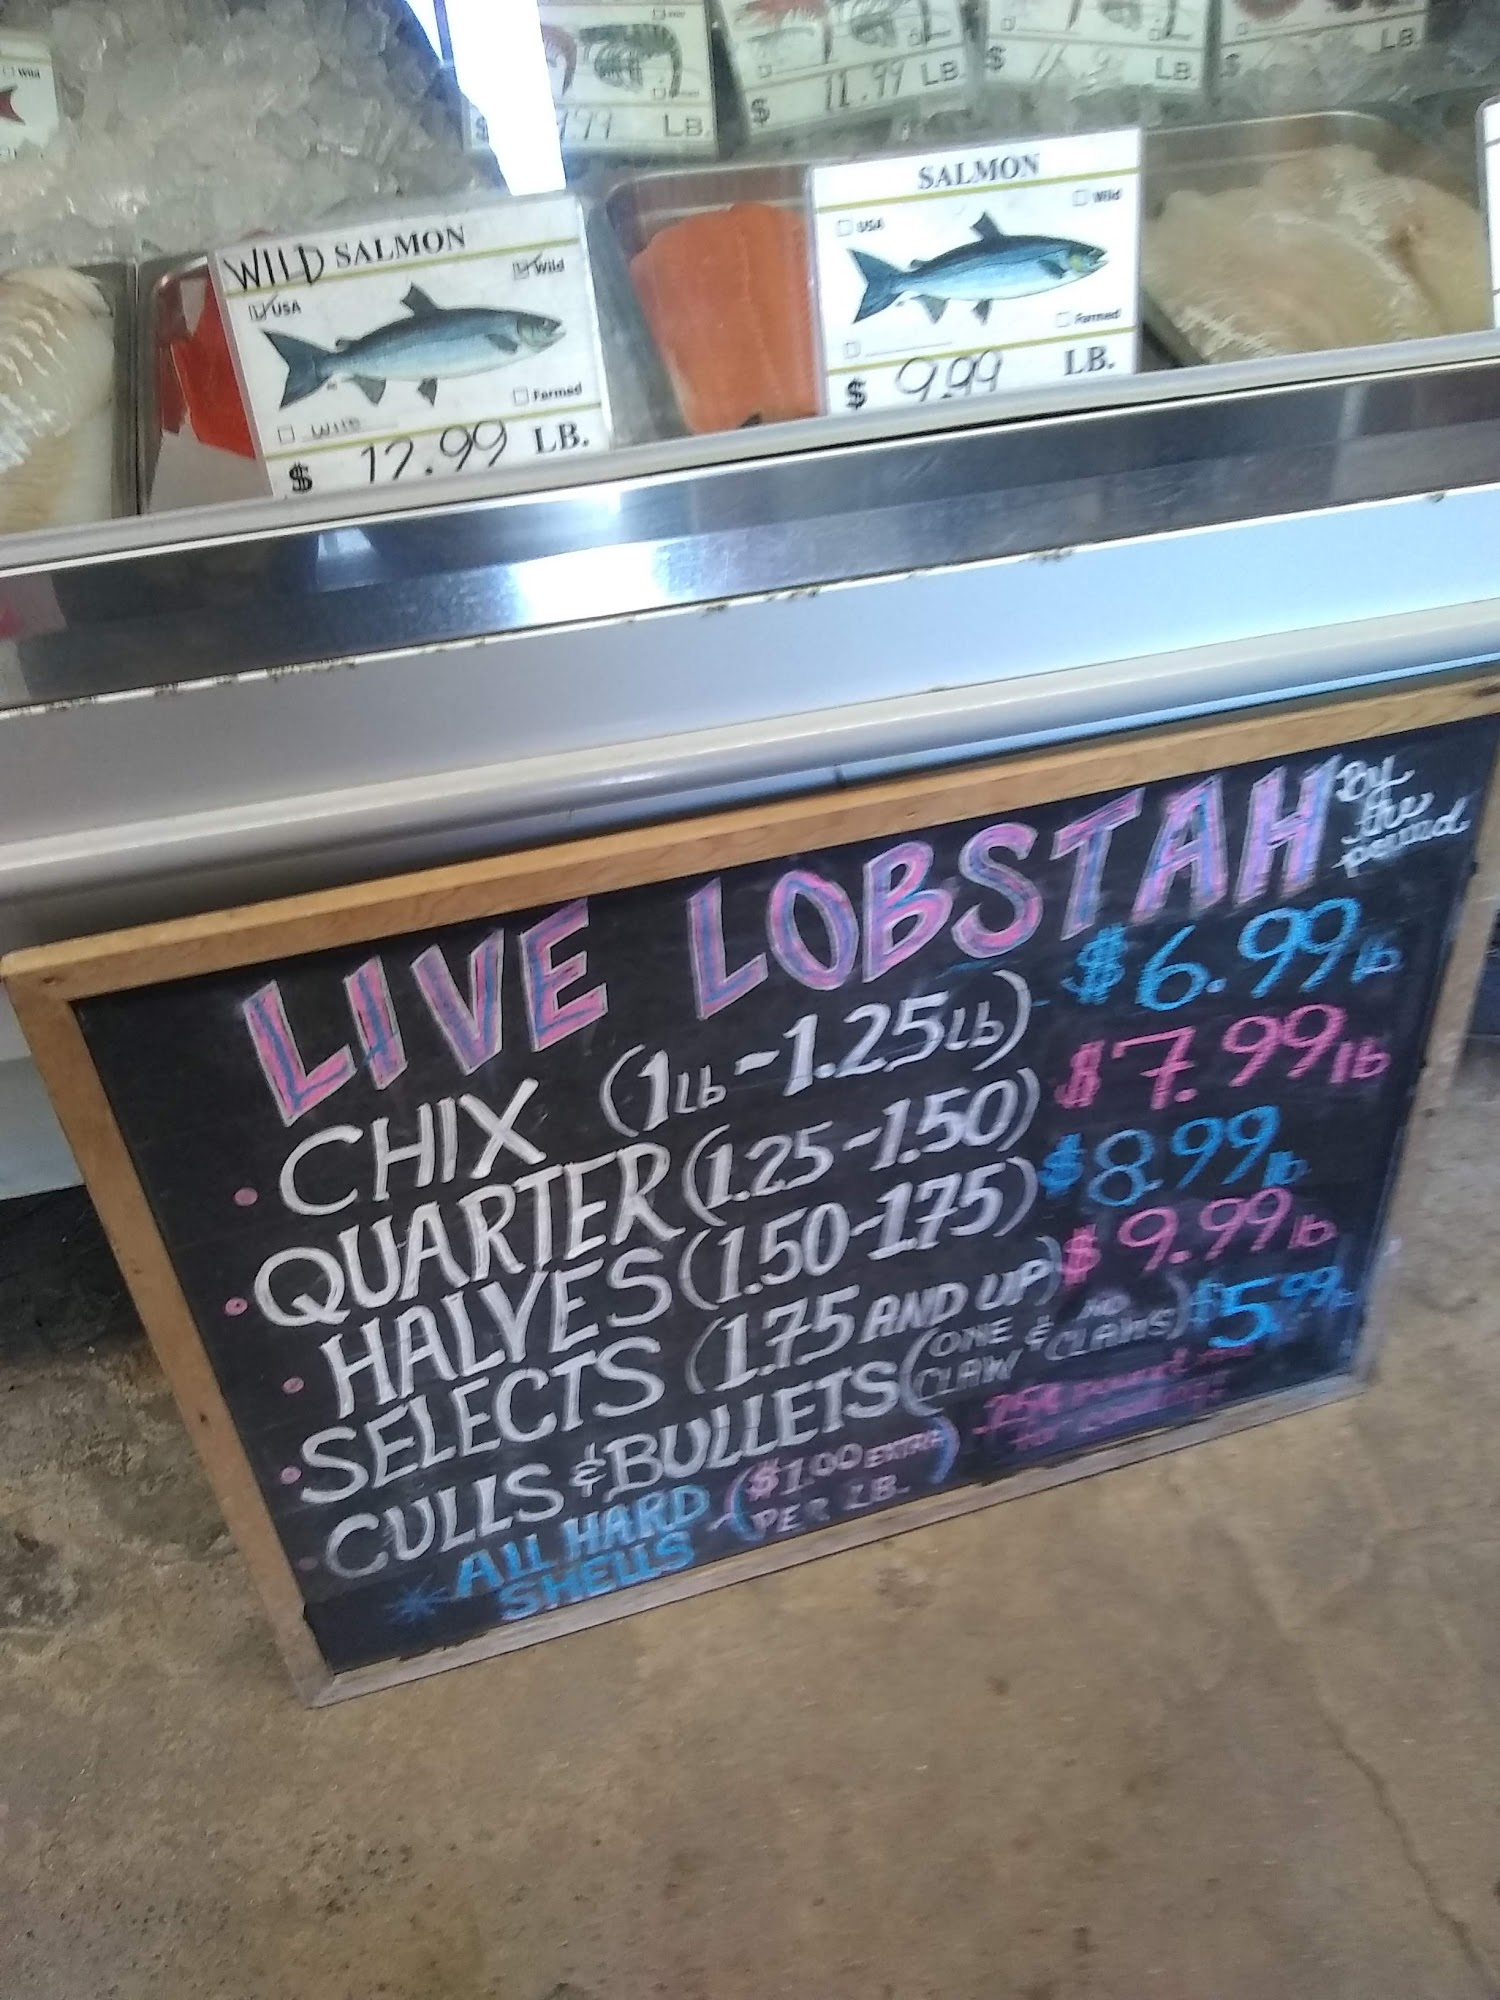 Wild
LB.
$ 11.99 LB.
$ LB.
$ LB.
WILD SALMON
Wild
USA
Farmed
Wild
$ 12.99 LB.
SALMON
USA
Wild
Farmed
$ 9.99 LB.
LIVE LOBSTAH By the pound
• CHIX (1lb-1.25lb) $6.99 lb
• QUARTER (1.25-1.50) $7.99 lb
• HALVES (1.50-1.75) $8.99 lb
• SELECTS (1.75 AND UP) $9.99 lb
• CULLS & BULLETS (ONE CLAW & NO CLAWS) $5.99 lb
* ALL HARD SHELLS - ($1.00 EXTRA PER LB.)